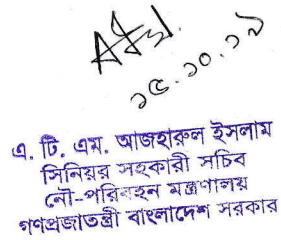 ১৫.১০.১৯
এ. টি. এম. আজহারুল ইসলাম
সিনিয়র সহকারী সচিব
নৌ-পরিবহন মন্ত্রণালয়
গণপ্রজাতন্ত্রী বাংলাদেশ সরকার